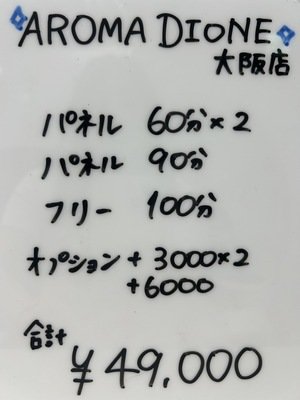 AROMA DIONE
大阪店
パネル 60分×2
パネル 90分
フリー 100分
オプション + 3000×2
+6000
合計
¥49,000